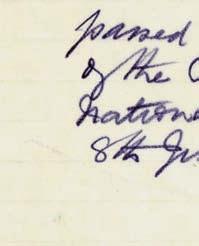 passed
of the
nation
8th Ju